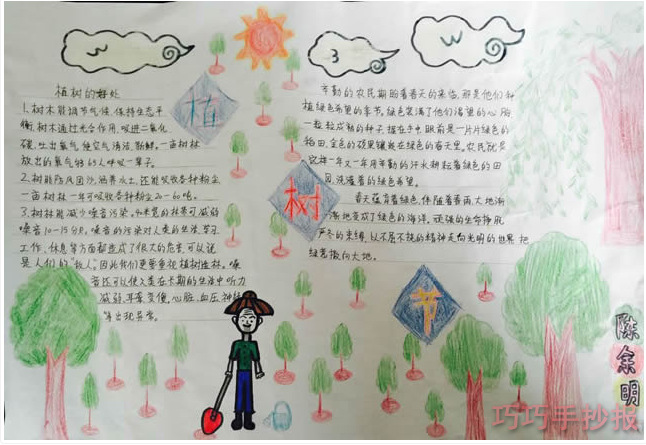 植树的好处
1、树木能调节气候,保持生态平
衡。树木通过光合作用,吸进二氧化
碳,吐出氧气,使空气清洁、新鲜。一亩树林
放出的氧气够65人呼吸一辈子。
2、树能防风固沙,涵养水土,还能吸收各种粉尘
一亩树林一年可吸收各种粉尘20-60吨。
3、树林能减少噪音污染。40米宽的林带可减弱
噪音10-15分贝。噪音的污染对人类的生活、学习
工作、休息等方面都造成了很大的危害,可以说
是人们的"敌人"。因此我们更要重视植树造林。噪
音还可以使人类在长期的生活中听力
减弱,耳聋变傻,心脏、血压、神经
等出现异常。
植
树
节
辛勤的农民期盼着春天的来临,那是他们种
植绿色希望的季节。绿色装满了他们渴望的心胸
一粒粒成熟的种子
眼前是一片片绿色的
金色的硕果
在绿色的春天里。农民就是
这样一年又一年用辛勤的汗水耕耘着绿色的田
园,浇灌着的绿色希望。
春天蕴育着绿色,伴随着春雨,大地渐
渐地变成了绿色的海洋。顽强的生命挣脱
严冬的束缚,以不屈不挠的精神走向光明的世界,把
绿意撒向大地。
陈余明
巧巧手抄报